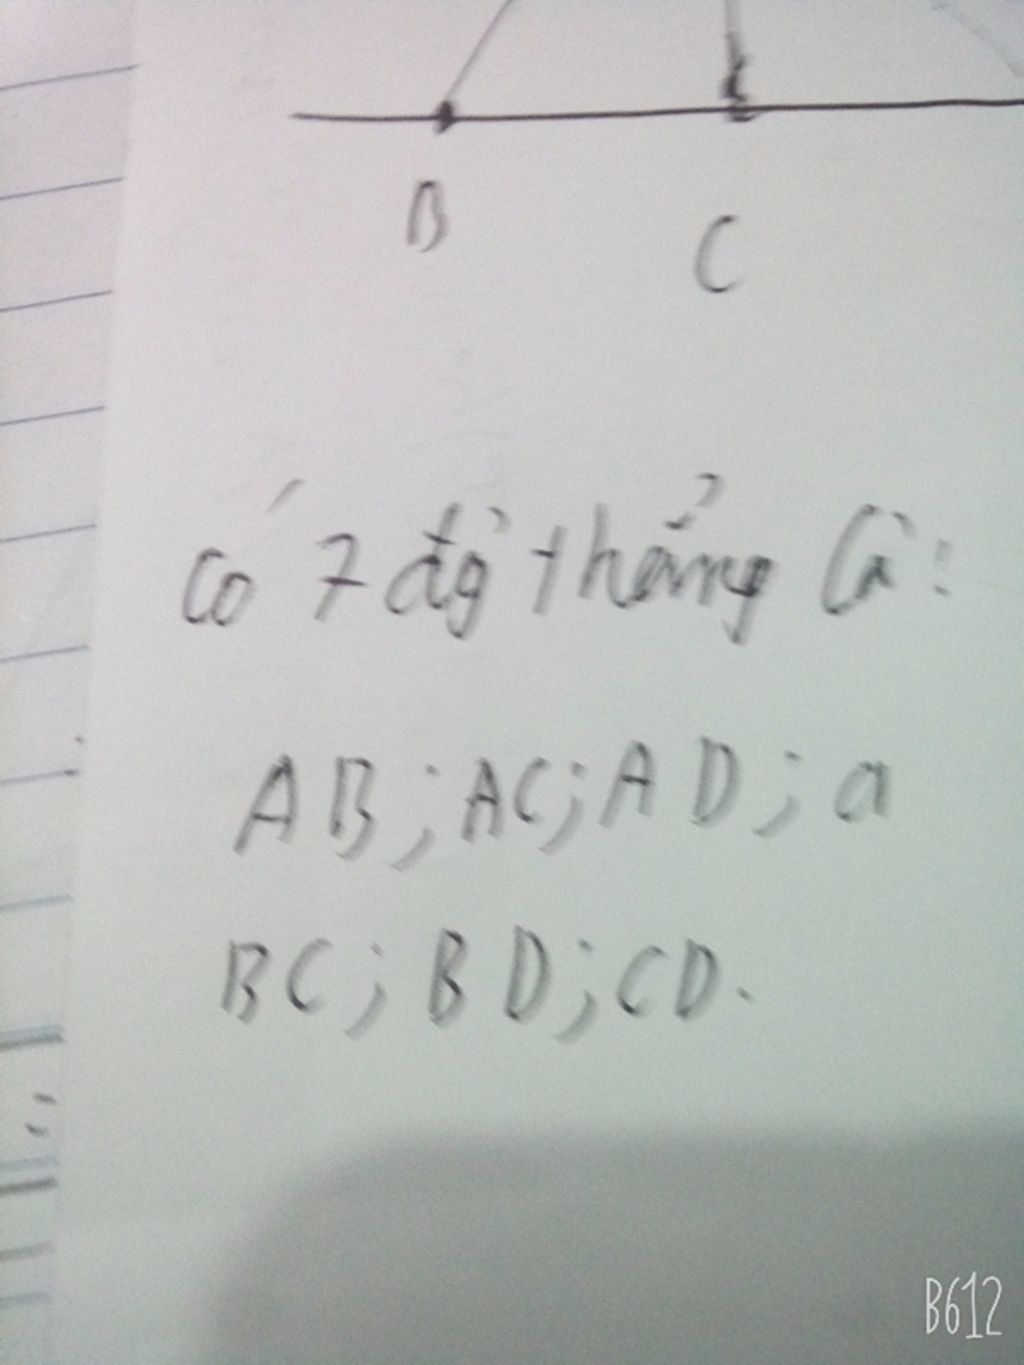 B
C
Có 7 đg' thẳng là:
AB; AC; AD; a
BC; BD; CD.
B612